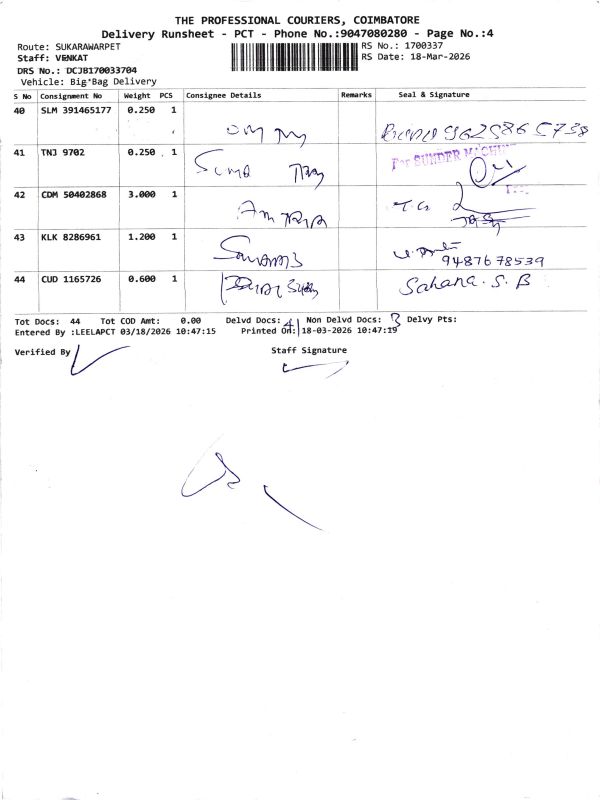 THE PROFESSIONAL COURIERS, COIMBATORE
Delivery Runsheet - PCT - Phone No.:9047080280 - Page No.:4
Route: SUKARAWARPET RS No.: 1700337
Staff: VENKAT RS Date: 18-Mar-2026
DRS No.: DCJB170033704
Vehicle: Big*Bag Delivery
S No Consignment No Weight PCS Consignee Details Remarks Seal & Signature
40 SLM 391465177 0.250 1
41 TNJ 9702 0.250 1 For SUNDER
42 CDM 50402868 3.000 1
43 KLK 8286961 1.200 1 9487678539
44 CUD 1165726 0.600 1 Sahana. S. B
Tot Docs: 44 Tot COD Amt: 0.00 Delvd Docs: 41 Non Delvd Docs: 3 Delvy Pts:
Entered By :LEELAPCT 03/18/2026 10:47:15 Printed On: 18-03-2026 10:47:19
Verified By Staff Signature